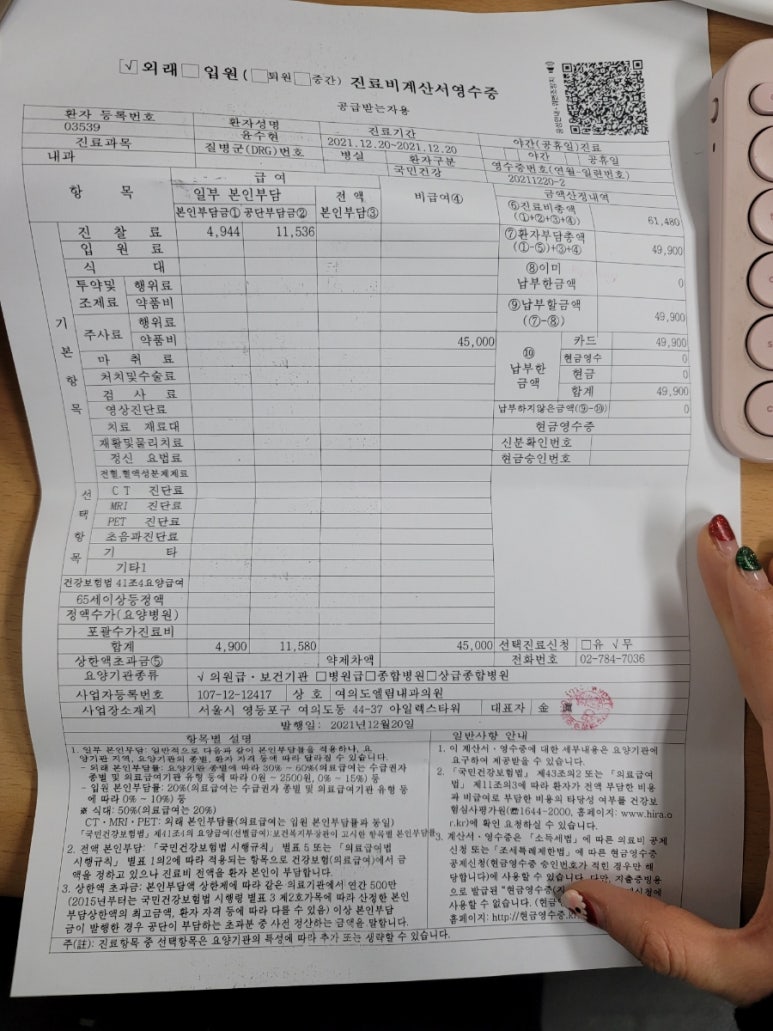 ☑ 외래 □ 입원 ( □ 퇴원 □ 중간) 진료비계산서영수증
공급받는자용
환자 등록번호 환자성명 진료기간 야간(공휴일)진료
03539 윤수현 2021.12.20~2021.12.20 야간 공휴일
진료과목 질병군(DRG)번호 병실 환자구분 영수증번호(연월-일련번호)
내과 국민건강 20211220-2
항 목 급 여 비급여④ 금액산정내역
일부 본인부담 전 액 본인부담③
본인부담금① 공단부담금② ⑥진료비총액 (①+②+③+④) 61,480
진 찰 료 4,944 11,536
입 원 료 ⑦환자부담총액 (①-⑤)+③+④ 49,900
식 대 ⑧이미 납부한금액 0
투약및 조제료 행위료
약품비 ⑨납부할금액 (⑦-⑧) 49,900
기본항목
주사료 행위료
약품비 45,000 ⑩ 납부한 금액 카드 49,900
마 취 료 현금영수 0
처치및수술료 현금 0
검 사 료 합계 49,900
영상진단료 납부하지않은금액(⑨-⑩) 0
치료 재료대 현금영수증
재활및물리치료 신분확인번호
정신 요법료 현금승인번호
전혈,혈액성분제제료
선택항목
CT 진단료
MRI 진단료
PET 진단료
초음파진단료
기 타
기타1
건강보험법 41조4요양급여
65세이상등정액
정액수가(요양병원)
포괄수가진료비
합계 4,900 11,580 45,000 선택진료신청 □유 √무
상한액초과금⑤ 약제차액 전화번호 02-784-7036
요양기관종류 √ 의원급·보건기관 □병원급□종합병원□상급종합병원
사업자등록번호 107-12-12417 상 호 여의도엘림내과의원
사업장소재지 서울시 영등포구 여의도동 44-37 아일렉스타워 대표자 金
발행일: 2021년12월20일
항목별 설명 일반사항 안내
1. 일부 본인부담: 일반적으로 다음과 같이 본인부담률을 적용하나, 요
양기관 지역, 요양기관의 종별, 환자 자격 등에 따라 달라질 수 있습니다.
- 외래 본인부담률: 요양기관 종별에 따라 30% ~ 60%(의료급여는 수급권자
종별 및 의료급여기관 유형 등에 따라 0원 ~ 2500원, 0% ~ 15%) 등
- 입원 본인부담률: 20%(의료급여는 수급권자 종별 및 의료급여기관 유형 등
에 따라 0% ~ 10%) 등
※ 식대: 50%(의료급여는 20%)
CT·MRI·PET: 외래 본인부담률(의료급여는 입원 본인부담률과 동일)
「국민건강보험법」제41조4의 요양급여(선별급여):보건복지부장관이 고시한 항목별 본인부담률
2. 전액 본인부담: 「국민건강보험법 시행규칙」 별표 5 또는 「의료급여법
시행규칙」 별표 1의2에 따라 적용되는 항목으로 건강보험(의료급여)에서 금
액을 정하고 있으나 진료비 전액을 환자 본인이 부담합니다.
3. 상한액 초과금: 본인부담액 상한제에 따라 같은 의료기관에서 연간 500만
(2015년부터는 국민건강보험법 시행령 별표 3 제2호가목에 따라 산정한 본인
부담상한액의 최고금액, 환자 자격 등에 따라 다를 수 있음) 이상 본인부담
금이 발행한 경우 공단이 부담하는 초과분 중 사전 정산하는 금액을 말합니다.
1. 이 계산서·영수증에 대한 세부내용은 요양기관에
요구하여 제공받을 수 있습니다.
2. 「국민건강보험법」 제43조의2 또는 「의료급여
법」 제11조의3에 따라 환자가 전액 부담한 비용
과 비급여로 부담한 비용의 타당성 여부를 건강보
험심사평가원(☎1644-2000, 홈페이지: www.hira.o
r.kr)에 확인 요청하실 수 있습니다.
3. 계산서·영수증은 「소득세법」에 따른 의료비 공제
신청 또는 「조세특례제한법」에 따른 현금영수증
공제신청(현금영수증 승인번호가 적힌 경우만 해
당합니다)에 사용할 수 있습니다. 다만, 지출증빙용
으로 발급된 "현금영수증(지 공제신청에
사용할 수 없습니다. (현금
홈페이지: http://현금영수증.kr
주(註): 진료항목 중 선택항목은 요양기관의 특성에 따라 추가 또는 생략할 수 있습니다.